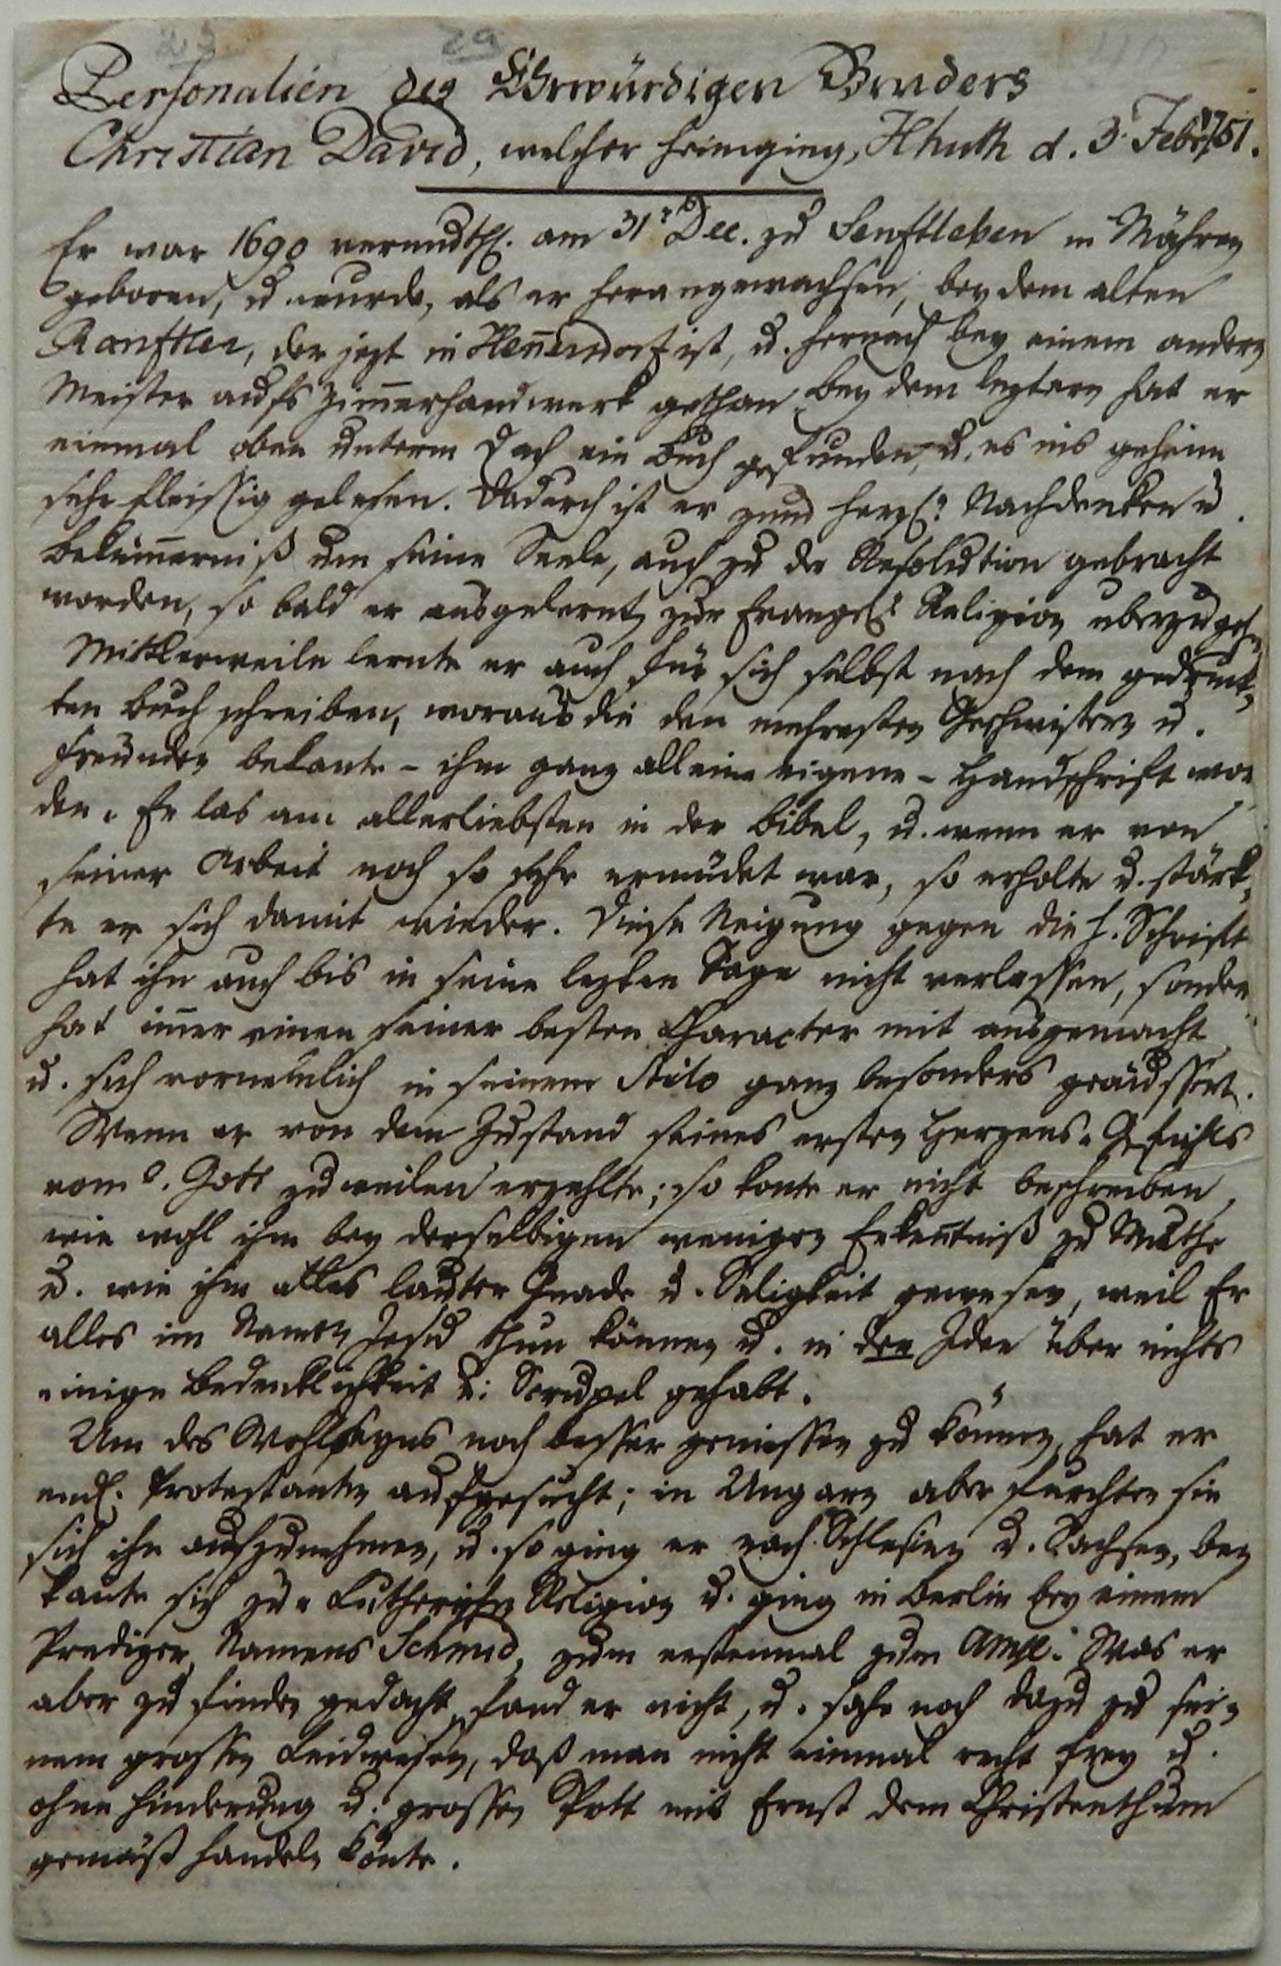 29
Personalien des Ehrwürdigen Bruders
Christian David, welcher heimging, Hhuth d. 3. Febr. 1751.
Er war 1690 vermuthl. am 31. Dec. zu Senftleben in Mähren
geboren, u. wurde, als er herangewachsen, bey dem alten
Ranftler, der jezt in Hen̄ersdorf ist, u. hernach bey einem andern
Meister aufs Zim̄erhandwerk gethan. Bey dem leztern hat er
einmal oben unterm Dach ein Buch gefunden, u. es ins geheim
sehr fleissig gelesen. Dadurch ist er zum herzl. Nachdenken u.
Beküm̄erniß um seine Seele, auch zu der Resolution gebracht
worden, so bald er ausgelernt, zur Evangel. Religion uberzugehn.
Mittlerweile lernte er auch für sich selbst nach dem gedruck-
ten Buch schreiben, woraus die den mehresten Geschwistern u.
Freunden bekante - ihm ganz alleine eigene - Handschrift wor
den. Er las am allerliebsten in der Bibel, u. wenn er von
seiner Arbeit noch so sehr ermüdet war, so erholte u. stärk-
te er sich damit wieder. Diese Neigung gegen die h. Schrift
hat ihn auch bis in seine lezten Tage nicht verlassen, sondern
hat im̄er einen seiner besten Character mit ausgemacht
u. sich vornemlich in seinem Stilo ganz besonders geäussert.
Wenn er von dem Zustand seines ersten Herzens-Gefühls
vom l. Gott zuweilen erzehlte; so konte er nicht beschreiben,
wie wohl ihm bey derselbigen wenigen Erken̄tniß zu Muthe
u. wie ihm alles lauter Gnade u. Seligkeit gewesen, weil Er
alles im Namen Jesu thun können u. in der Idee über nichts
einige Bedenklichkeit u. Scrupel gehabt.
Um des Wohlseyns noch besser geniessen zu können, hat er
endl. Protestanten aufgesucht; in Ungarn aber furchten sie
sich ihn aufzunehmen, u. so ging er nach Schlesien u. Sachsen, be-
kante sich zur Lutherischen Religion u. ging in Berlin bey einem
Prediger, Namens Schmid, zum erstenmal zum Abendmahl. Was er
aber zu finden gedacht, fand er nicht, u. sahe noch dazu zu sei-
nem grossen Leidwesen, daß man nicht einmal recht frey u.
ohne Hinderung u. grossen Spott mit Ernst dem Christenthum
gemäß handeln könte.